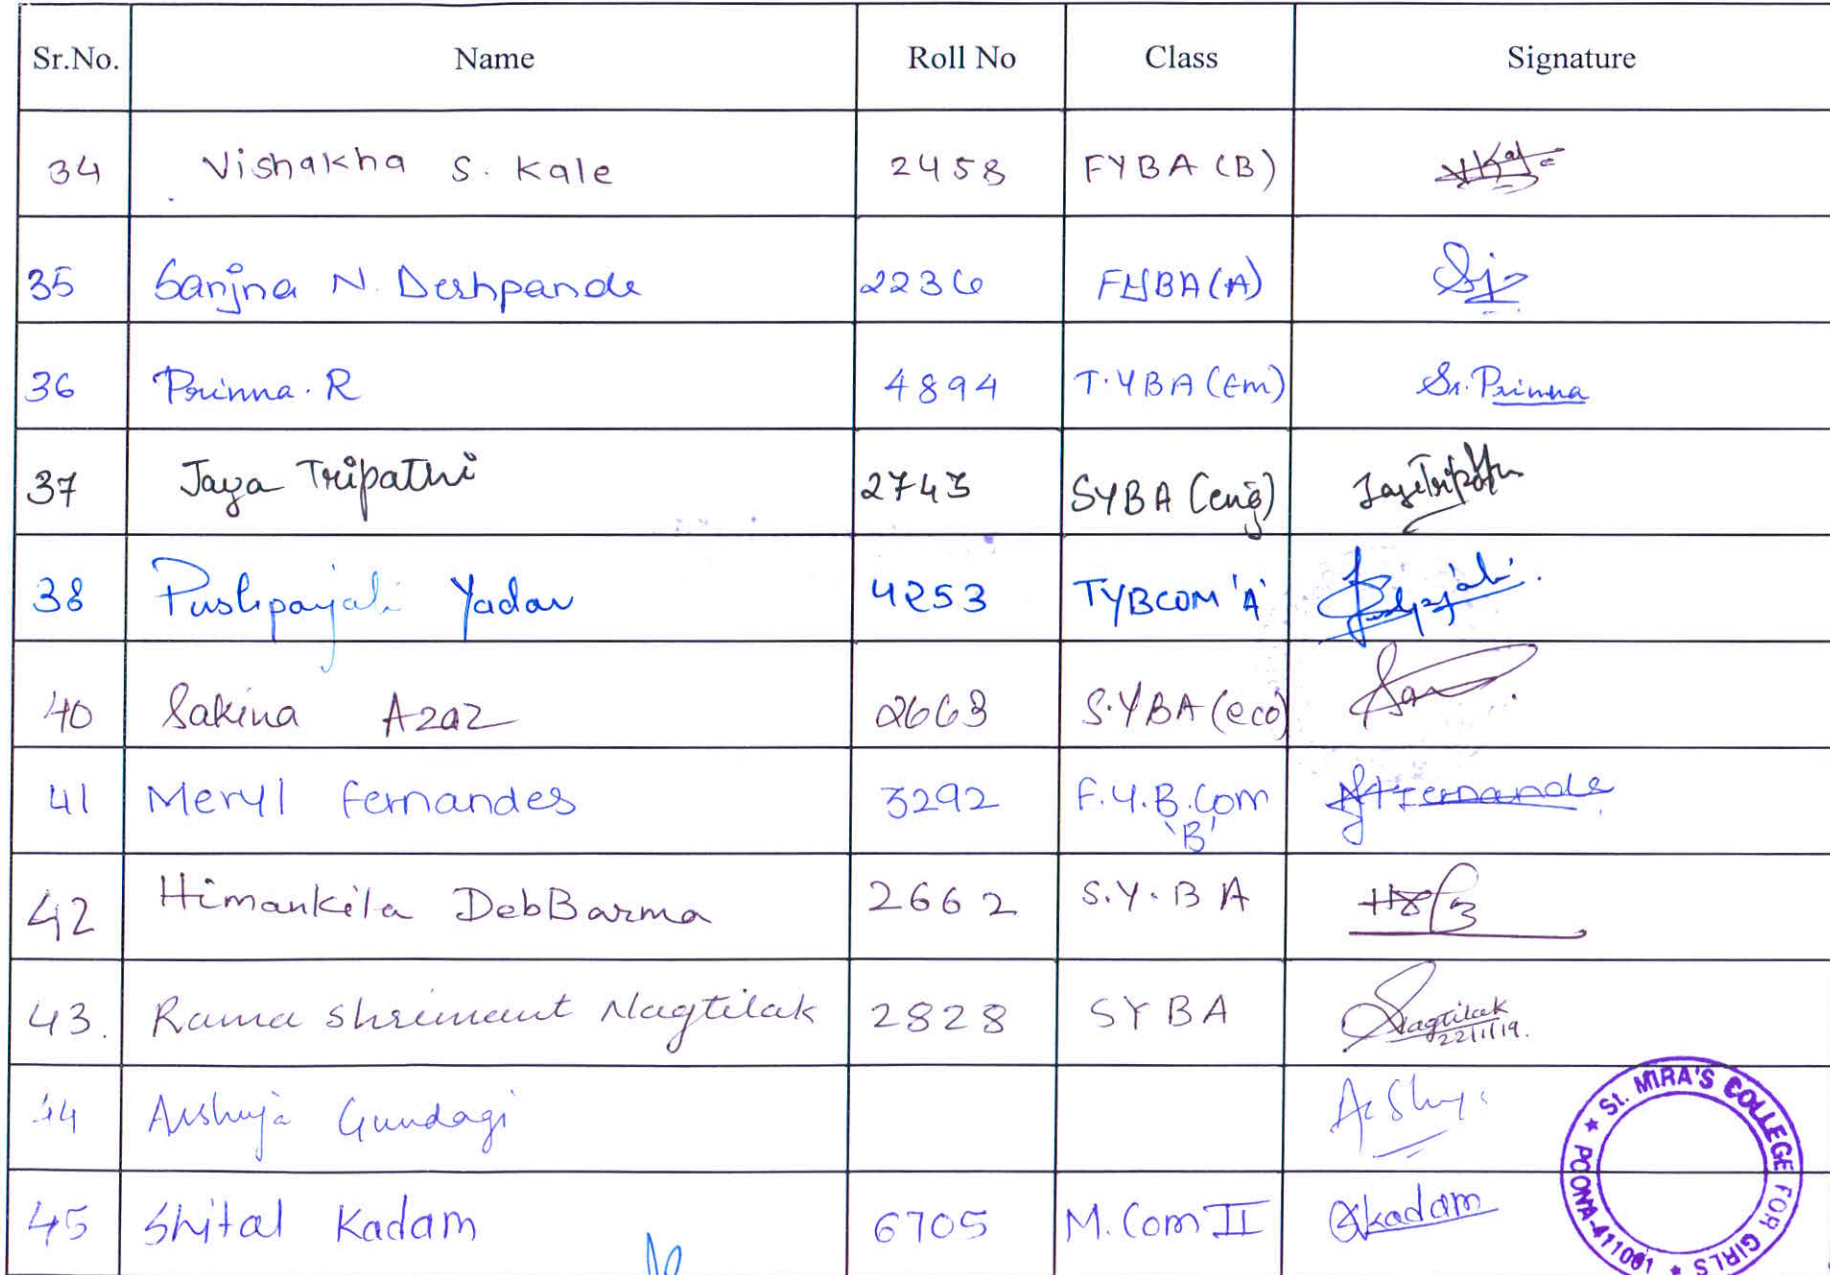 Sr.No. Name Roll No Class Signature
34 Vishakha S. Kale 2458 FYBA (B)
35 Sanjna N. Deshpande 2236 FYBA (A)
36 Prinna. R 4894 T.YBA (Em) Sr. Prinna
37 Jaya Tripathi 2743 SYBA (eng) Jaya Tripathi
38 Pushpanjali Yadav 4253 TYBCOM 'A'
40 Sakina Azaz 2663 S.YBA (eco)
41 Meryl Fernandes 3292 F.Y.B.Com
'B'
42 Himankila DebBarma 2662 S.Y.BA
43. Rama Shrimant Nagtilak 2828 SYBA Nagtilak
22/1/19.
44 Gundagi
45 Shital Kadam 6705 M.Com II Skadam
St. MIRA'S COLLEGE FOR GIRLS * POONA-411001 *